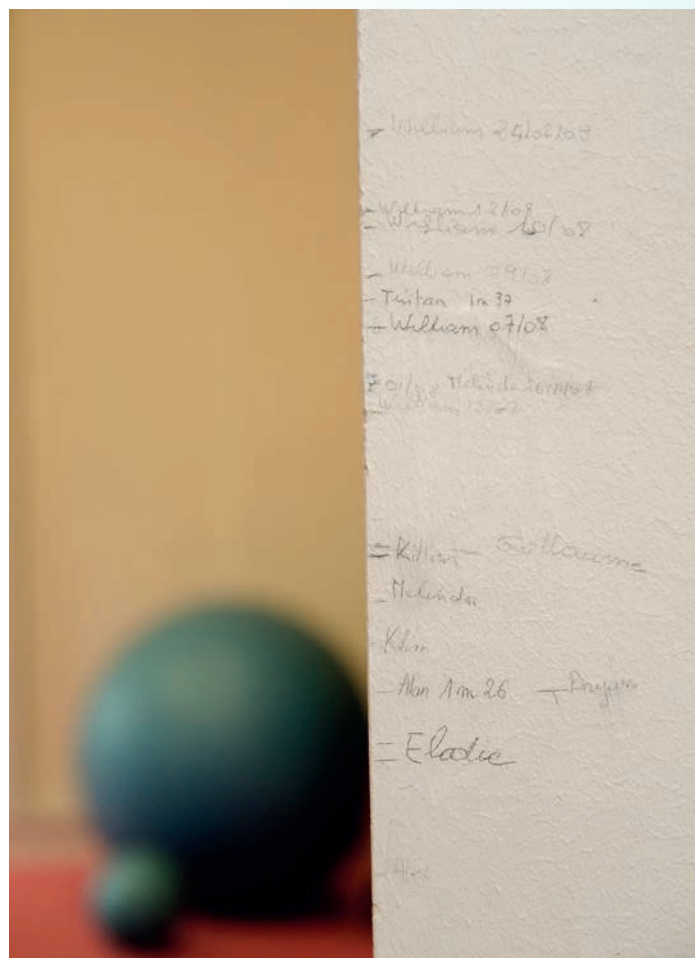 William 25/02/09
William 12/08
William 10/08
William 09/08
Tristan 1m 37
William 07/08
Melinda
William
Killian Guillaume
Melinda
Kilian
Alan 1m 26
Elodie